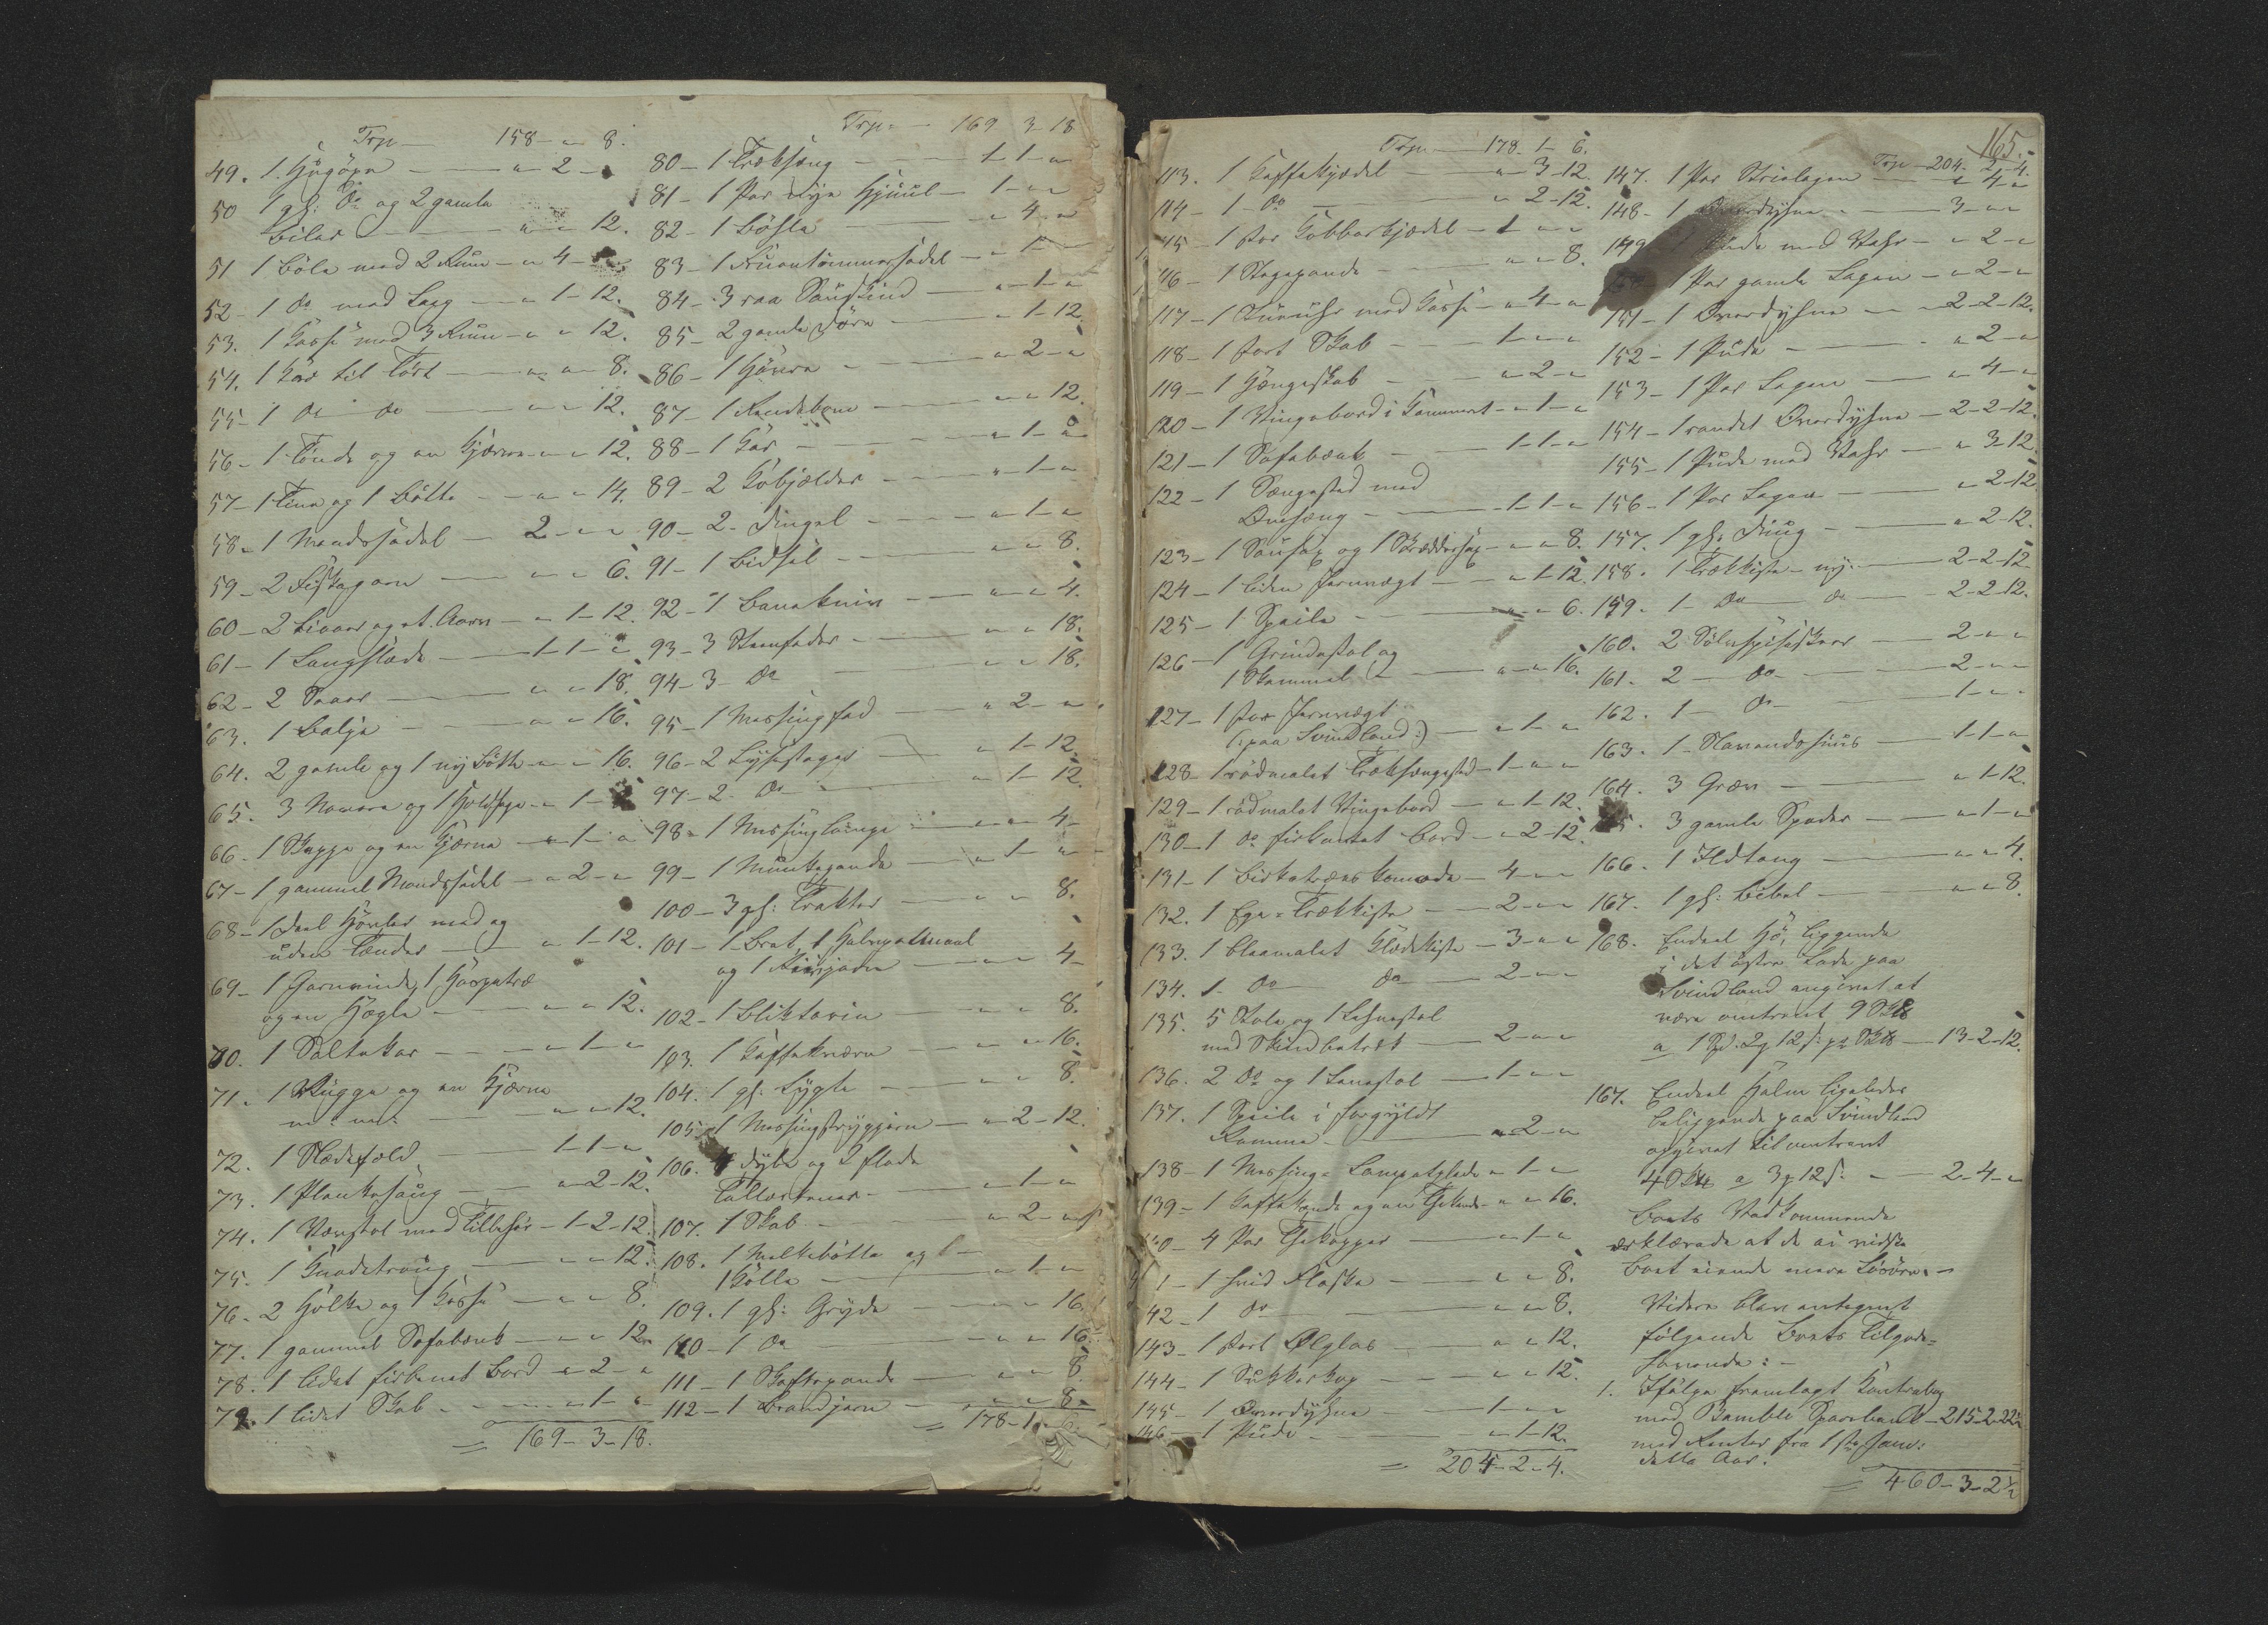 Trp — 158 - „ - 8.
49. 1 Hugøxe — „ - 2 - „
50 1 gl: do og 2 gamle
Biler — „ - „ - 12.
51 1 Bøle med 2 Rum — „ - 4 - „
52 - 1 do med Laag — „ - 1 - 12.
53. 1 Kasse med 3 Rum — „ - „ - 12.
54. 1 Kar til Tørt — „ - „ - 8.
55 - 1 do do — „ - „ - 12.
56 - 1 Tønde og en Kjærne — „ - „ - 12.
57 - 1 Tine og 1 Bøtte — „ - „ - 14.
58 - 1 Mandssadel — 2 - „ - „
59 - 2 Fiskegarn — „ - „ - 6.
60 - 2 Liaar og et Aarv — „ - 1 - 12.
61 - 1 Langslæde — 1 - 1 - „
62 - 2 Saaer — „ - „ - 18.
63. 1 Balje — „ - „ - 16.
64. 2 gamle og 1 ny Bøtte — „ - „ - 16.
65. 3 Navere og 1 Holdsage — „ - 1 - „
66 - 1 Skjeppe og en Kjærne — „ - 1 - „
67 - 1 gammel Mandssadel — „ - 2 - „
68 - 1 Deel Høvler med og
uden Tænder — „ - 1 - 12.
69 - 1 Garnvinde, 1 Haspetræ
og en Hegle — „ - „ - 12.
70. 1 Saltekar — „ - 1 - „
71. 1 Vugge og en Kjærne
m: m: — „ - „ - 12.
72. 1 Slædefæld — 1 - 1 - „
73. 1 Plankesaug — „ - 2 - 12.
74. 1 Vævstol med Tilbehør — 1 - 2 - 12.
75. 1 Knadetroug — „ - „ - 12.
76 - 2 Holke og 1 Kasse — „ - „ - 8.
77. 1 gammel Sofabænk — „ - „ - 12.
78. 1 lidet firkantet Bord — „ - 2 - „
79. 1 lidet Skab — „ - 1 - „
= 169 - 3 - 18.
Trp: — 169 3 - 18
80 - 1 Træksæng — 1 - 1 - „
81 - 1 Par nye Hjuul — 1 - „ - „
82 - 1 Bøsse — „ - 4 - „
83 - 1 Fruentimmersadel — „ - 1 - „
84 - 3 raa Sauskind — „ - 1 - „
85 - 2 gamle Døre — „ - 1 - 12
86 - 1 Harve — „ - 2 - „
87 - 1 Rendebom — „ - „ - 12.
88 - 1 Kar — „ - 1 - „
89 - 2 Kobjælder — „ - 1 - „
90 - 2 Dingel — „ - 1 - „
91 - 1 Bidsel — „ - „ - 8.
92 - 1 Banekniv — „ - „ - 4.
93 - 3 Steenfader — „ - „ - 18.
94 - 3 do — „ - „ - 18.
95 - 1 Messingfad — „ - 2 - „
96 - 2 Lysestager — „ - 1 - 12.
97 - 2 do — „ - 1 - 12
98 - 1 Messinglampe — „ - „ - 4 -
99 - 1 Munkepande — „ - 1 - „
100 - 3 gl: Trakter — „ - „ - 8.
101 - 1 Bræt, 1 Halvpottmaal
og 1 Riivjærn — „ - „ - 4 -
102 - 1 Bliktavin — „ - „ - 8.
103. 1 Kaffekværn — „ - „ - 16.
104. 1 gl: Lygte — „ - „ - 8.
105. 1 Messingstrygjern — „ - 2 - 12.
106. 4 dybe og 2 flade
Tallerkener — „ - 1 - „
107. 1 Skab — „ - 2 - „
108. 1 Melkebøtte og
1 Kolle — „ - 1 - „
109. 1 gl: Gryde — „ - „ - 16
110 - 1 do — „ - „ - 16
111 - 1 Skaftepande — „ - „ - 8
112 - 1 Brandjern — „ - „ - 8 -
= 178 - 1 - 6
165.
Trp — 178 - 1 - 6.
113. 1 Kaffekjedel — „ - 3 - 12.
114 - 1 do — „ - 2 - 12.
115 - 1 stor Kobberkjædel — 1 - „ - „
116 - 1 Stegepande — „ - „ - 8.
117 - 1 Stueuhr med Kasse — „ - 4 - „
118 - 1 stort Skab — 1 - „ - „
119 - 1 Hængeskab — „ - 2 - „
120 - 1 Vingebord i Kammeret — „ - 1 - „
121 - 1 Sofabænk — 1 - 1 - „
122 - 1 Sængested med
Omhæng — 1 - 1 - „
123 - 1 Sausax og 1 Skræddersax — „ - „ - 8.
124 - 1 liden Jernvægt — „ - 1 - 12
125 - 1 Speile — „ - „ - 6.
126 - 1 Grindestol og
1 Skammel — „ - „ - 16.
127 - 1 stor Jernvægt
(: paa Svindland :) — „ - 1 - „
128 - 1 rødmalet Træksængested — 1 - „ - „
129 - 1 rødmalet Vingebord — „ - 1 - 12.
130 - 1 do firkantet Bord — „ - 2 - 12.
131 - 1 Birketræes Komode — 4 - „ - „
132. 1 Ege-Trækkiste — 2 - „ - „
133. 1 blaamalet Klædekiste — 3 - „ - „
134. 1 do do — 2 - „ - „
135. 5 Stole og 1 Lehnestol
med Skindbetræk — 2 - „ - „
136. 2 do og 1 Lænestol — 1 - „ - „
137. 1 Speile i forgyldt
Ramme — „ - 2 - „
138 - 1 Messing-Lampetplade „ - 1 - „
139 - 1 Kaffekande og en Thekande „ - „ - 16.
140 - 4 Par Thekopper — „ - 1 - „
1 - 1 hvid Flaske — „ - „ - 8.
42 - 1 do — „ - „ - 8.
143 - 1 stort Ølglas — „ - „ - 12.
144 - 1 Sukkerkop — „ - „ - 12.
145 - 1 Overdyne — 1 - „ - „
146 - 1 Pude — „ - 1 - 12.
= 204 - 2 - 4.
Trp — 204 - 2 - 4.
147. 1 Par Strielagen — „ - 4 - „
148 - 1 Overdyne — 3 - „ - „
149 Pude med Vahr — „ - 2 - „
1 Par gamle Lagen — „ - 2 - „
151 - 1 Overdyne — 2 - 2 - 12.
152 - 1 Pude — „ - 2 - „
153 - 1 Par Lagen — „ - 4 - „
154 - 1 randet Overdyne — 2 - 2 - 12.
155 - 1 Pude med Vahr — „ - 3 - 12
156 - 1 Par Lagen — „ - 2 - 12
157. 1 gl: Duug — „ - 2 - 12.
158. 1 Trækkiste - ny — 2 - 2 - 12
159. 1 - do do — 2 - 2 - 12.
160. 2 Sølvspiseskeer — 2 - „ - „
161. 2 — do — 2 - „ - „
162. 1 — do — 1 - „ - „
163. 1 Slavandshuus — 1 - 1 - „
164. 3 Grev — „ - 1 - 12.
165. 3 gamle Spader — „ - 1 - „
166. 1 Ildtang — „ - „ - 4.
167. 1 gl: Bibel — „ - „ - 8.
168. Endeel Hø, liggende
i det østre Lade paa
Svindland angivet at
være omtrent 9 Sk℔
a 1 Spd. 2 ȥ 12 ß: pr Sk℔ — 13 - 2 - 12.
167. Endeel Halm ligeledes
beliggende paa Svindland
opgivet til omtrent
4 Sk℔ a 3 ȥ 12 ß. — 2 - 4 - „
Boets Vedkommende
erklærede at de ei vidste
Boet eiende mere Løsøre. —
Videre blev antegnet
følgende Boets Tilgode-
havende: —
1. Ifølge fremlagt Kontrabog
med Bamble Sparebank — 215 - 2 - 22½
med Renter fra 1ste Janr:
dette Aar.
= 460 - 3 - 2½